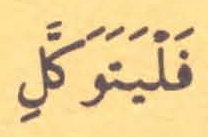 فَلْيَتَوَكَّلِ